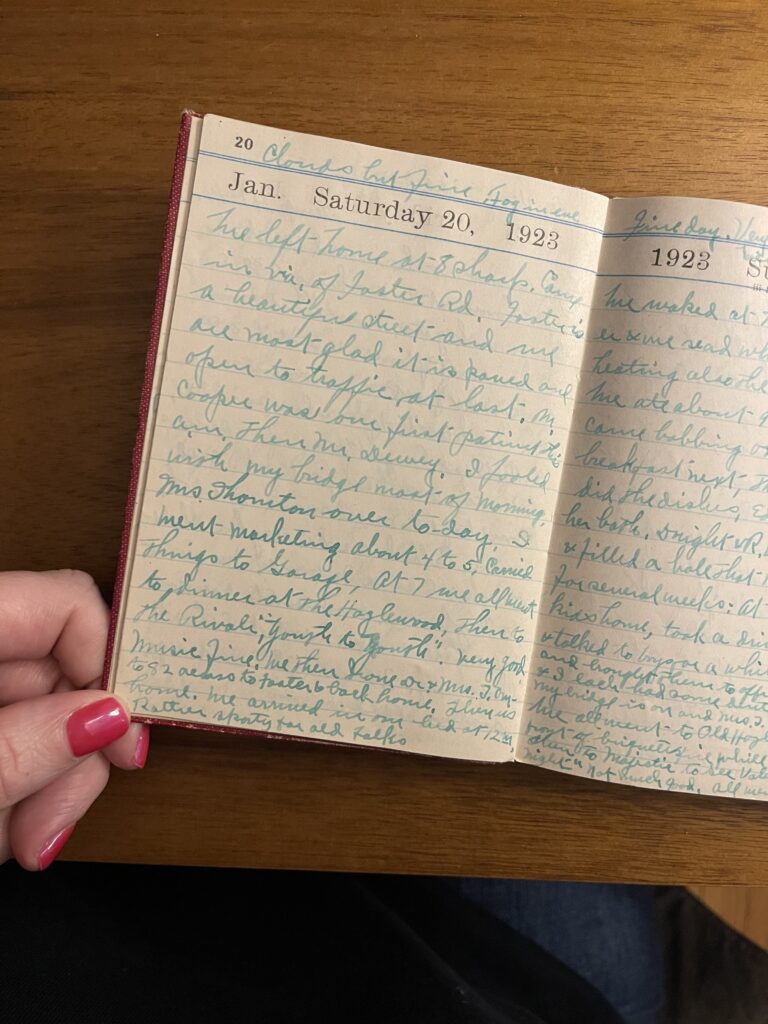 20 Clouds but fine Fog in eve
Jan. Saturday 20, 1923
We left home at 8 sharp. Came
in via. of Foster Rd. Foster is
a beautiful street and we
are most glad it is paved and
open to traffic at last. M
Cooper was our first patient this
a.m. then Mr. Dewey. I fooled
with my bridge most of morning.
Mrs. Thornton over to-day. I
went marketing about 4 to 5, carried
things to Garage. At 7 we all went
to dinner at the Hazlewood, then to
the Rivoli, "Youth to Youth". Very good
Music fine. We then drove Dr & Mrs. T.
to 82 across to Foster & back home. Then us
home. We arrived in our bed at 12
Rather sporty for old folks
Fine day. Very
1923 Su
We waked at 7
er & we read wh
heating also he
We ate about 9
came bobbing o
breakfast next, th
did the dishes, E
her bath. Dwight & R.
& filled a hole that
for several weeks. At
his home, took a dri
& talked to boys a whi
and brought them to off
& I each had some dent
my bridge is on and Mrs. T.
We all went to Old Hazl
part of briquettes while
then to Majestic to see Vale
night" Not much good, all we